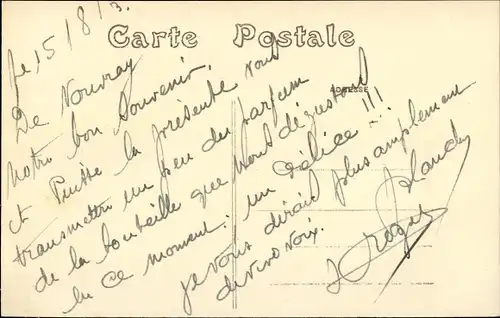 Carte Postale
ADRESSE
le 15/8/13.
De Vouvray
Notre bon Souvenir.
et Puisse la présente vous
transmettre un peu du parfum
de la bouteille que nous dégustons
en ce moment. un délice !!!
je vous dirai plus amplement
de vive voix.
Blanche
Roger